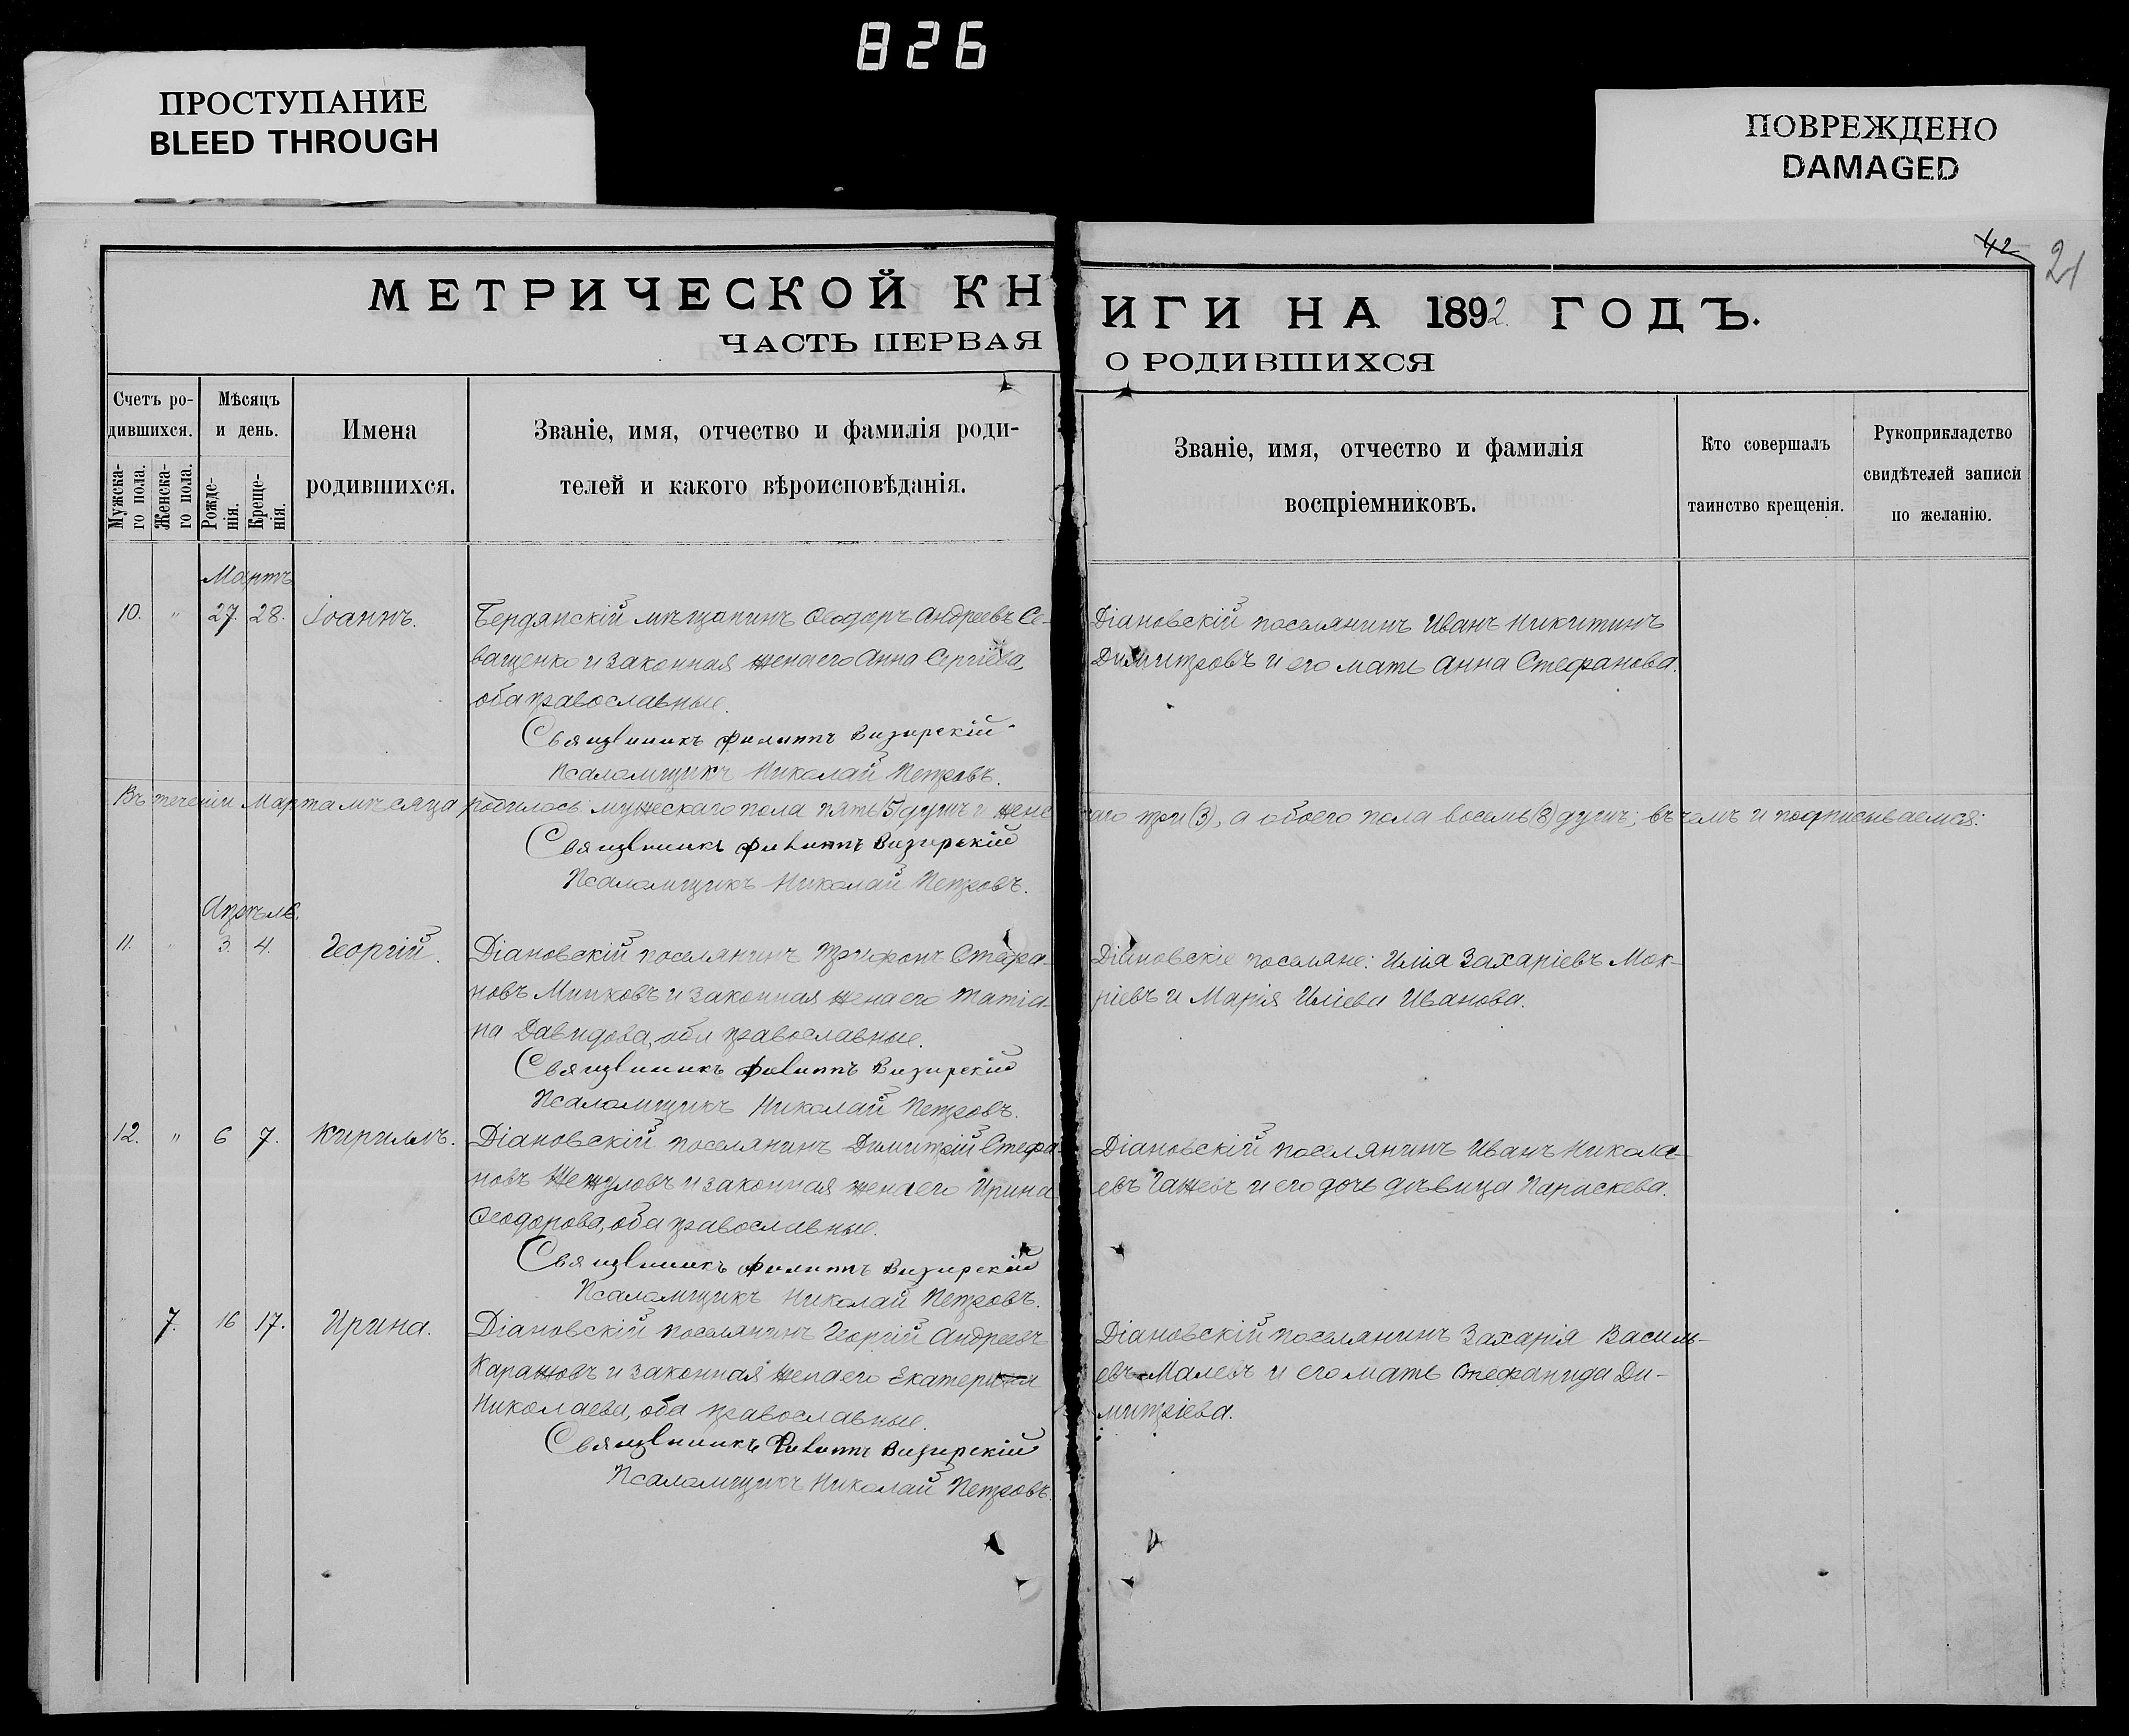 826
ПРОСТУПАНИЕ
BLEED THROUGH
ПОВРЕЖДЕНО
DAMAGED
42
21
МЕТРИЧЕСКОЙ КНИГИ НА 1892 ГОДЪ.
ЧАСТЬ ПЕРВАЯ О РОДИВШИХСЯ
Счетъ ро-
дившихся.
Мужска-
го пола.
Женска-
го пола.
Мѣсяцъ
и день.
Рожде-
нія.
Креще-
нія.
Имена
родившихся.
Званіе, имя, отчество и фамилія роди-
телей и какого вѣроисповѣданія.
Званіе, имя, отчество и фамилія
воспріемниковъ.
Кто совершалъ
таинство крещенія.
Рукоприкладство
свидѣтелей записи
по желанію.
Мартъ
10. " 27. 28. Іоаннъ.
Бердянскій мѣщанинъ Ѳеодоръ Андреевъ Се-
ващенко и законная жена его Анна Сергіева,
оба православные.
Священникъ Филиппъ Визирскій
Псаломщикъ Николай Петровъ.
Діановскій поселянинъ Иванъ Никитинъ
Димитровъ и его мать Анна Стефанова.
Въ теченіи Марта мѣсяца родилось: мужескаго пола пять (5) душъ и женскаго три (3), а обоего пола восемь (8) душъ; въ чемъ и подписываемся:
Священникъ Филиппъ Визирскій
Псаломщикъ Николай Петровъ.
Апрѣль.
11. " 3. 4. Георгій.
Діановскій поселянинъ Трифонъ Стефа-
новъ Минковъ и законная жена его Татіа-
на Давидова, оба православные.
Священникъ Филиппъ Визирскій
Псаломщикъ Николай Петровъ.
Діановскіе поселяне: Илія Захаріевъ Мок-
ріевъ и Марія Иліева Иванова.
12. " 6 7. Кириллъ.
Діановскій поселянинъ Димитрій Стефа-
новъ Жежуловъ и законная жена его Ирина
Ѳеодорова, оба православные.
Священникъ Филиппъ Визирскій
Псаломщикъ Николай Петровъ.
Діановскій поселянинъ Иванъ Никола-
евъ Гажевъ и его дочь дѣвица Параскева.
7. 16 17. Ирина.
Діановскій поселянинъ Георгій Андреевъ
Каражовъ и законная жена его Екатерина
Николаева, оба православные.
Священникъ Филиппъ Визирскій
Псаломщикъ Николай Петровъ.
Діановскій поселянинъ Захарія Василь-
евъ Малевъ и его мать Стефанида Ди-
митріева.